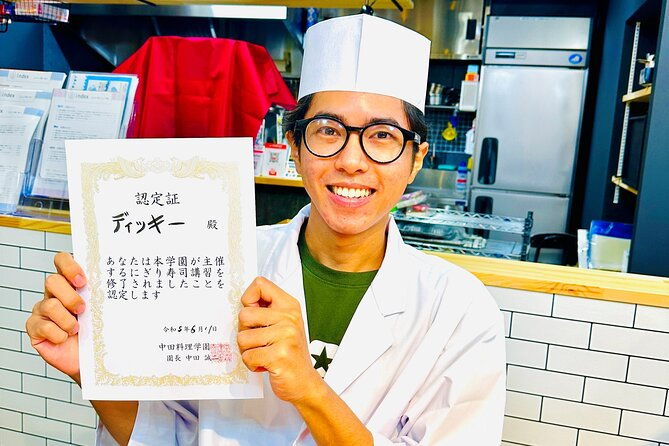 認定証
ディッキー 殿
あなたは本学園が主催
するにぎり寿司講習を
修了されましたことを
認定します
令和5年6月11日
中田料理学園
園長 中田 誠二
index
index